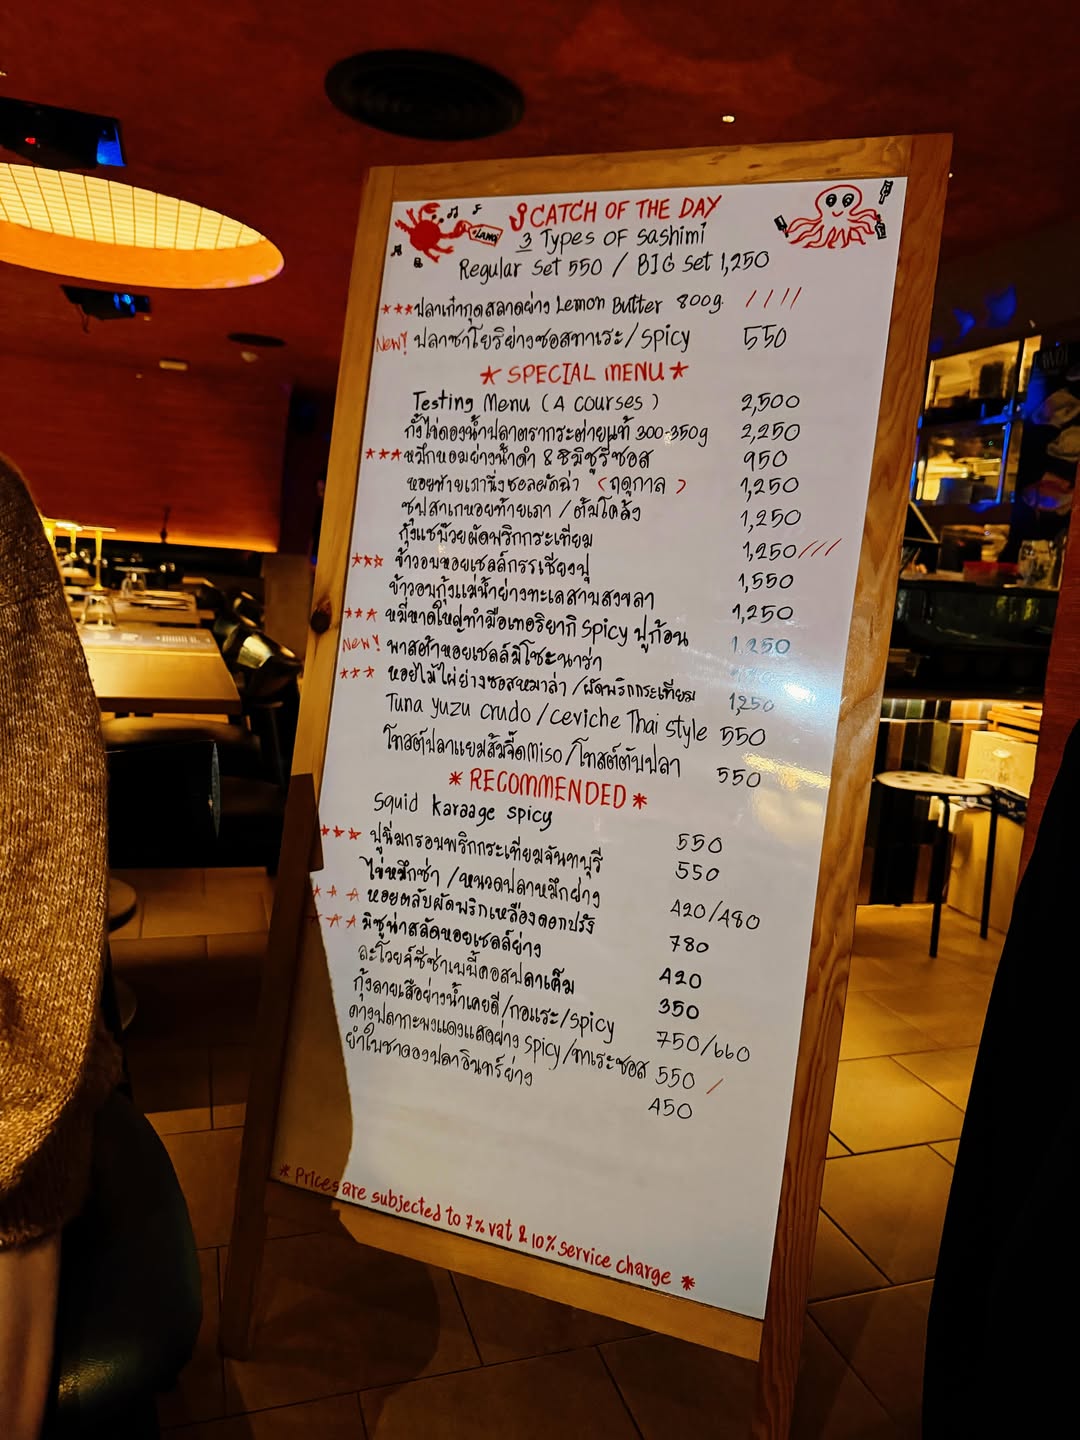 CATCH OF THE DAY
3 Types OF Sashimi
Regular Set 550 / BIG Set 1,250
***ปลาเก๋ากุดสลาดย่าง Lemon Butter 800g.
New! ปลาซาโยริย่างซอสทาเระ/Spicy 550
* SPECIAL MENU *
Testing Menu (4 courses) 2,500
กั้งไข่ดองน้ำปลาตรากระต่ายแท้ 300-350g 2,250
***หมึกหอมย่างน้ำดำ & ชิมิชูรีซอส 950
หอยท้ายเภานึ่งซอสผัดฉ่า (ฤดูกาล) 1,250
ซุปสาเกหอยท้ายเภา / ต้มโคล้ง 1,250
กุ้งแชบ๊วยผัดพริกกระเทียม 1,250
*** ข้าวอบหอยเชลล์กรรเชียงปู 1,550
ข้าวอบกุ้งแม่น้ำย่างทะเลสาบสงขลา 1,250
*** หมี่หาดใหญ่ทำมือเทอริยากิ Spicy ปูก้อน 1,250
New! พาสต้าหอยเชลล์มิโซะนาร่า
*** หอยไม้ไผ่ย่างซอสหมาล่า /ผัดพริกกระเทียม 1,250
Tuna yuzu crudo / ceviche Thai Style 550
โทสต์ปลาแยมส้มจี๊ดmiso / โทสต์ตับปลา 550
* RECOMMENDED *
Squid karaage spicy 550
*** ปูนิ่มกรอบพริกกระเทียมจันทบุรี 550
ไข่หมึกซ่า / หนวดปลาหมึกย่าง 420/480
*** หอยตลับผัดพริกเหลืองดอกปรัง 780
*** มิซูน่าสลัดหอยเชลล์ย่าง 420
ละโวยจ์ซีซ่าเบบี้คอสปลาเค็ม 350
กุ้งลายเสือย่างน้ำเคยดี/กอแระ/Spicy 750/660
คางปลากะพงแดงแสดย่าง Spicy/ทาเระซอส 550
ยำใบชาดองปลาอินทรีย่าง 450
* Prices are subjected to 7% vat & 10% service charge *